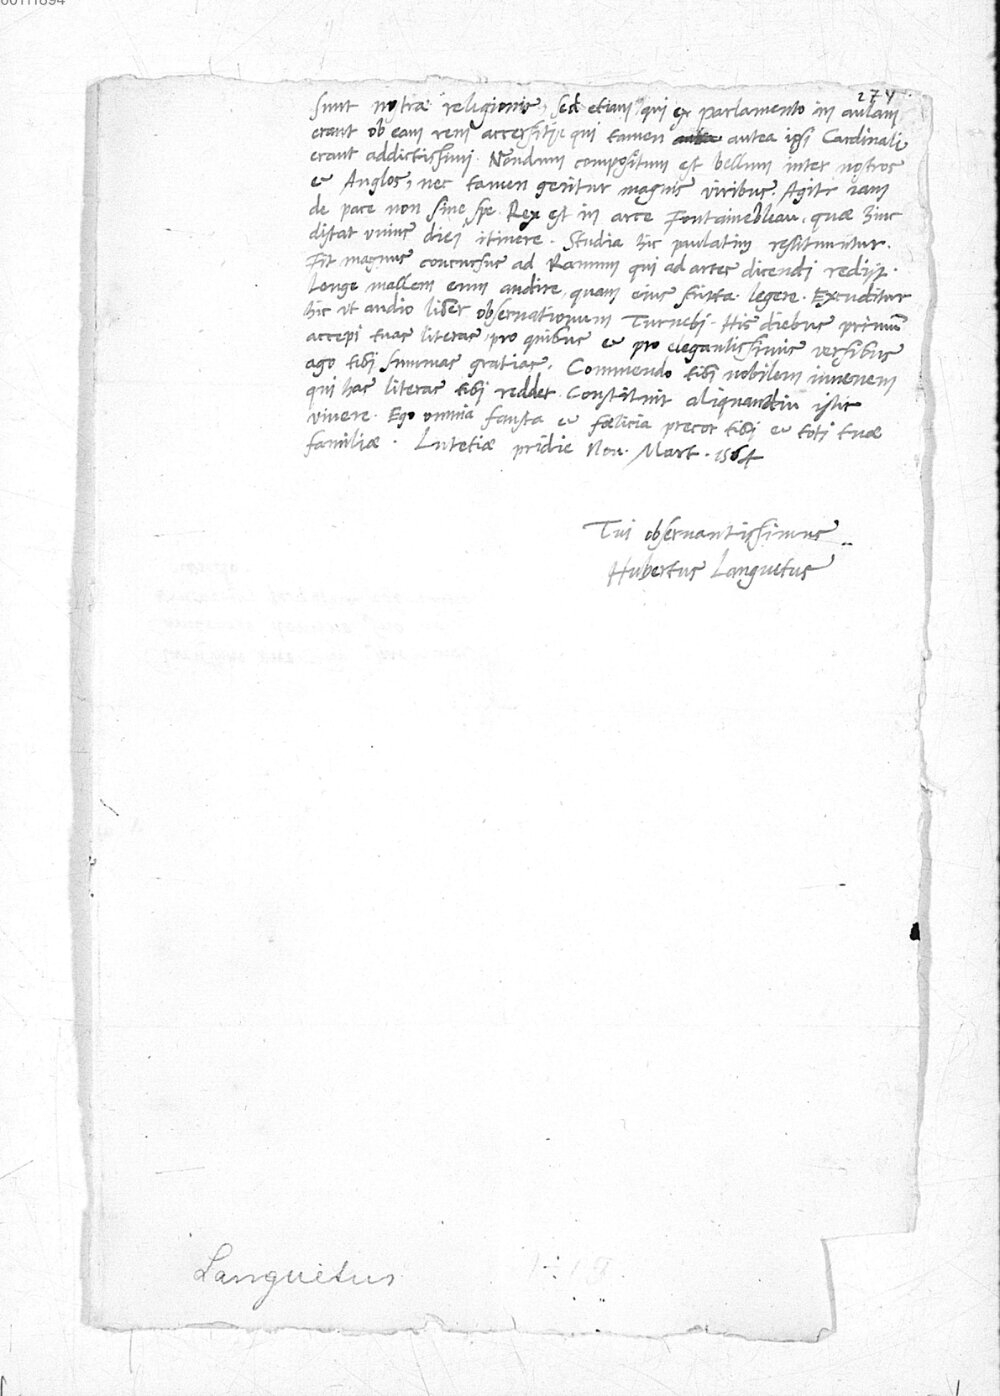 274
sunt nostrae religionis, sed etiam qui ex parlamento in aulam
erant ob eam rem accersiti, qui tamen antea ipsi Cardinali
erant addictissimi. Nondum compositum est bellum inter nostros
et Anglos, nec tamen geritur magnis viribus. Agitr iam
de pace non sine spe. Rex est in arce Fontainebleau, quae hinc
distat unius diei itinere. Studia hic paulatim restituuntur.
Fit magnus concursus ad Ramum qui ad artes dicendi redijt.
Longe mallem eum audire, quam eius scripta legere. Excuditur
hic ut audio liber observationum Turnebi. His diebus primum
accepi tuas literas, pro quibus et pro elegantissimis versibus
ago tibi summas gratias. Commendo tibi nobilem iuvenem
qui has literas tibi reddet. Constituit aliquandiu istic
vivere. Ego omnia fausta et foelicia precor tibi et toti tuae
familiae. Lutetiae pridie Non. Mart. 1564
Tui observantissimus
Hubertus Languetus
Languetus